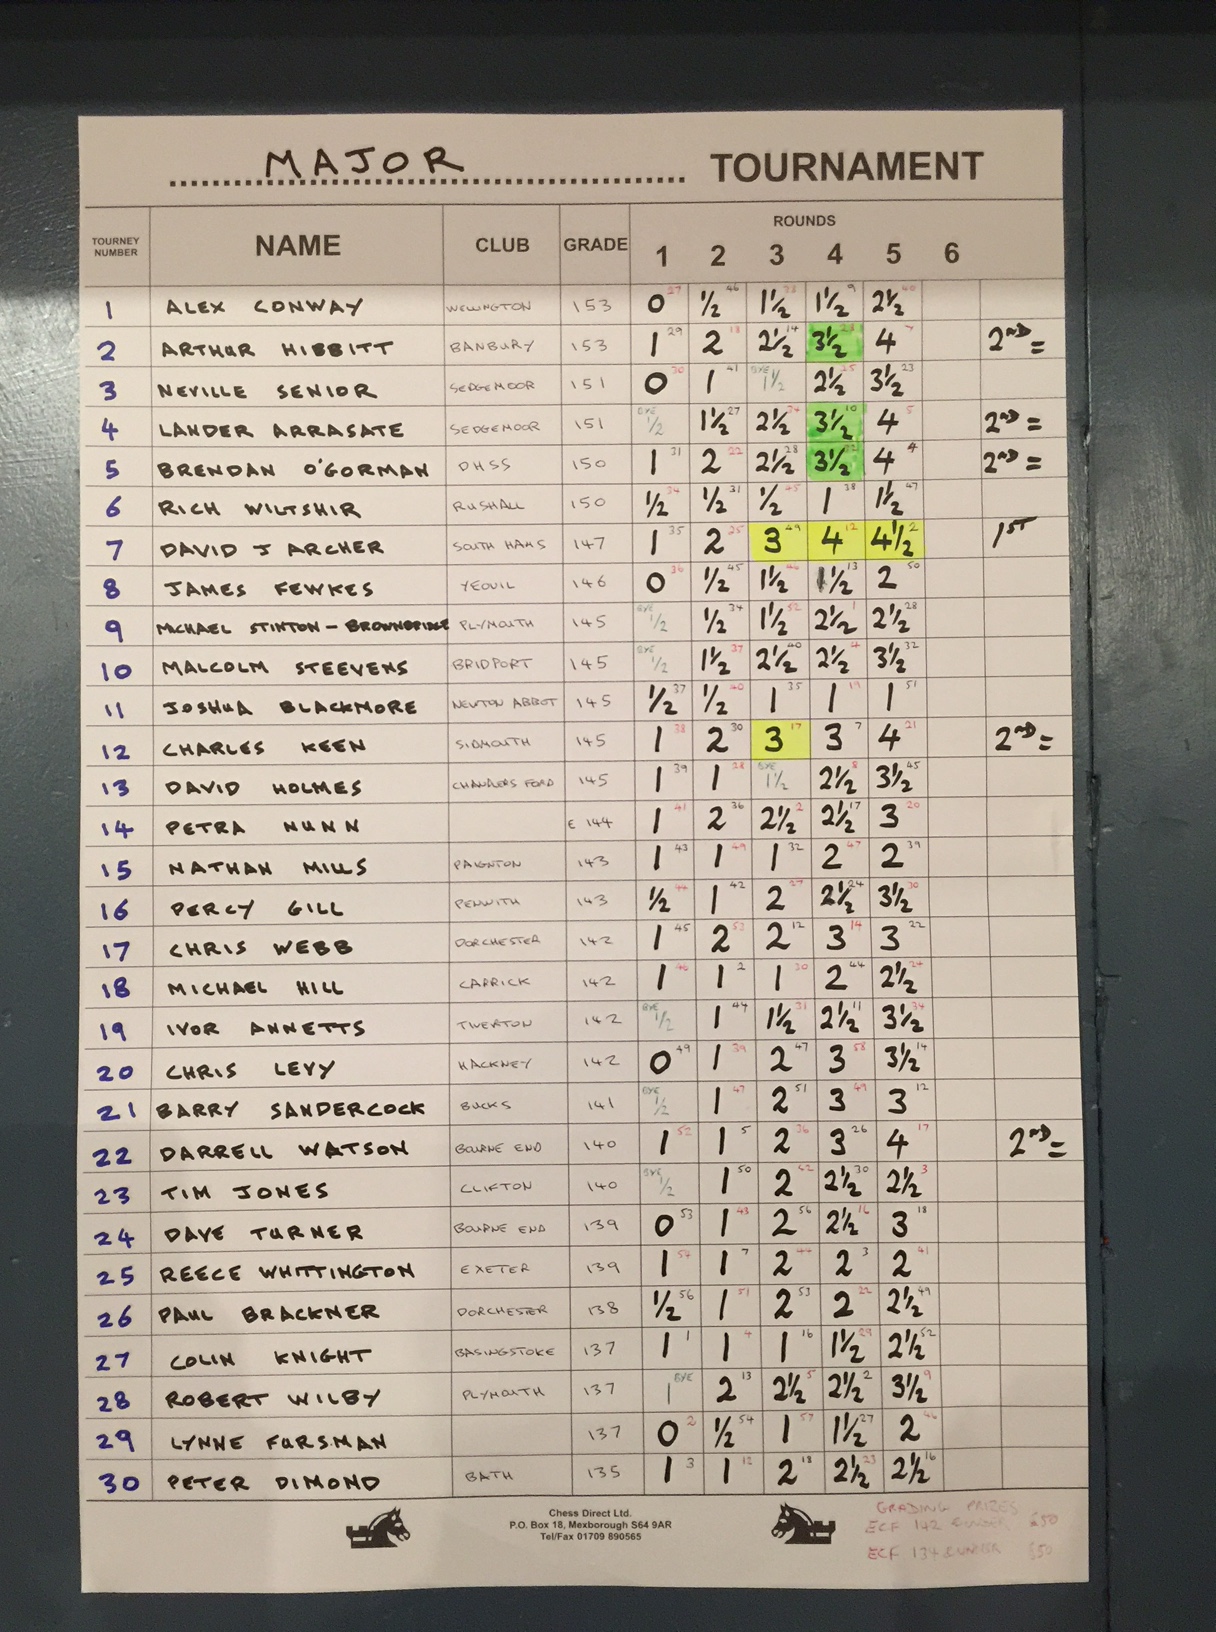 MAJOR TOURNAMENT
TOURNEY NUMBER NAME CLUB GRADE ROUNDS 1 2 3 4 5 6
1 ALEX CONWAY WELLINGTON 153 0 27 ½ 46 1½ 23 1½ 9 2½ 40
2 ARTHUR HIBBITT BANBURY 153 1 29 2 18 2½ 14 3½ 4 7 2ND =
3 NEVILLE SENIOR SEDGEMOOR 151 0 30 1 41 BYE 1½ 2½ 25 3½ 23
4 LANDER ARRASATE SEDGEMOOR 151 BYE ½ 1½ 27 2½ 3½ 10 4 5 2ND =
5 BRENDAN O'GORMAN DHSS 150 1 31 2 22 2½ 28 3½ 4 4 2ND =
6 RICH WILTSHIR RUSHALL 150 ½ 34 ½ 31 ½ 45 1 38 1½ 47
7 DAVID J ARCHER SOUTH HAMS 147 1 35 2 25 3 49 4 12 4½ 2 1ST
8 JAMES FEWKES YEOVIL 146 0 36 ½ 45 1½ 46 1½ 13 2 50
9 MICHAEL STINTON-BROWNBRIDGE PLYMOUTH 145 BYE ½ ½ 34 1½ 52 2½ 1 2½ 28
10 MALCOLM STEEVENS BRIDPORT 145 BYE ½ 1½ 37 2½ 40 2½ 4 3½ 32
11 JOSHUA BLACKMORE NEWTON ABBOT 145 ½ 37 ½ 40 1 35 1 19 1 51
12 CHARLES KEEN SIDMOUTH 145 1 38 2 30 3 17 3 7 4 21 2ND =
13 DAVID HOLMES CHANDLERS FORD 145 1 39 1 28 BYE 1½ 2½ 8 3½ 45
14 PETRA NUNN E 144 1 41 2 36 2½ 2 2½ 17 3 20
15 NATHAN MILLS PAIGNTON 143 1 43 1 49 1 32 2 47 2 39
16 PERCY GILL PENWITH 143 ½ 44 1 42 2 27 2½ 24 3½ 30
17 CHRIS WEBB DORCHESTER 142 1 45 2 53 2 12 3 14 3 22
18 MICHAEL HILL CARRICK 142 1 46 1 2 1 30 2 44 2½ 24
19 IVOR ANNETTS TIVERTON 142 BYE ½ 1 44 1½ 31 2½ 11 3½ 34
20 CHRIS LEVY HACKNEY 142 0 49 1 39 2 47 3 58 3½ 14
21 BARRY SANDERCOCK BUCKS 141 BYE ½ 1 47 2 51 3 49 3 12
22 DARRELL WATSON BOURNE END 140 1 52 1 5 2 36 3 26 4 17 2ND =
23 TIM JONES CLIFTON 140 BYE ½ 1 50 2 2½ 30 2½ 3
24 DAVE TURNER BOURNE END 139 0 53 1 43 2 56 2½ 16 3 18
25 REECE WHITTINGTON EXETER 139 1 54 1 7 2 44 2 3 2 41
26 PAUL BRACKNER DORCHESTER 138 ½ 56 1 51 2 53 2 22 2½ 49
27 COLIN KNIGHT BASINGSTOKE 137 1 1 1 4 1 16 1½ 29 2½ 52
28 ROBERT WILBY PLYMOUTH 137 1 BYE 2 13 2½ 5 2½ 2 3½ 9
29 LYNNE FURSMAN 137 0 2 ½ 54 1 57 1½ 27 2 46
30 PETER DIMOND BATH 135 1 3 1 12 2 18 2½ 23 2½ 16
Chess Direct Ltd.
P.O. Box 18, Mexborough S64 9AR
Tel/Fax 01709 890565
GRADING PRIZES
ECF 142 & UNDER £50
ECF 134 & UNDER £50